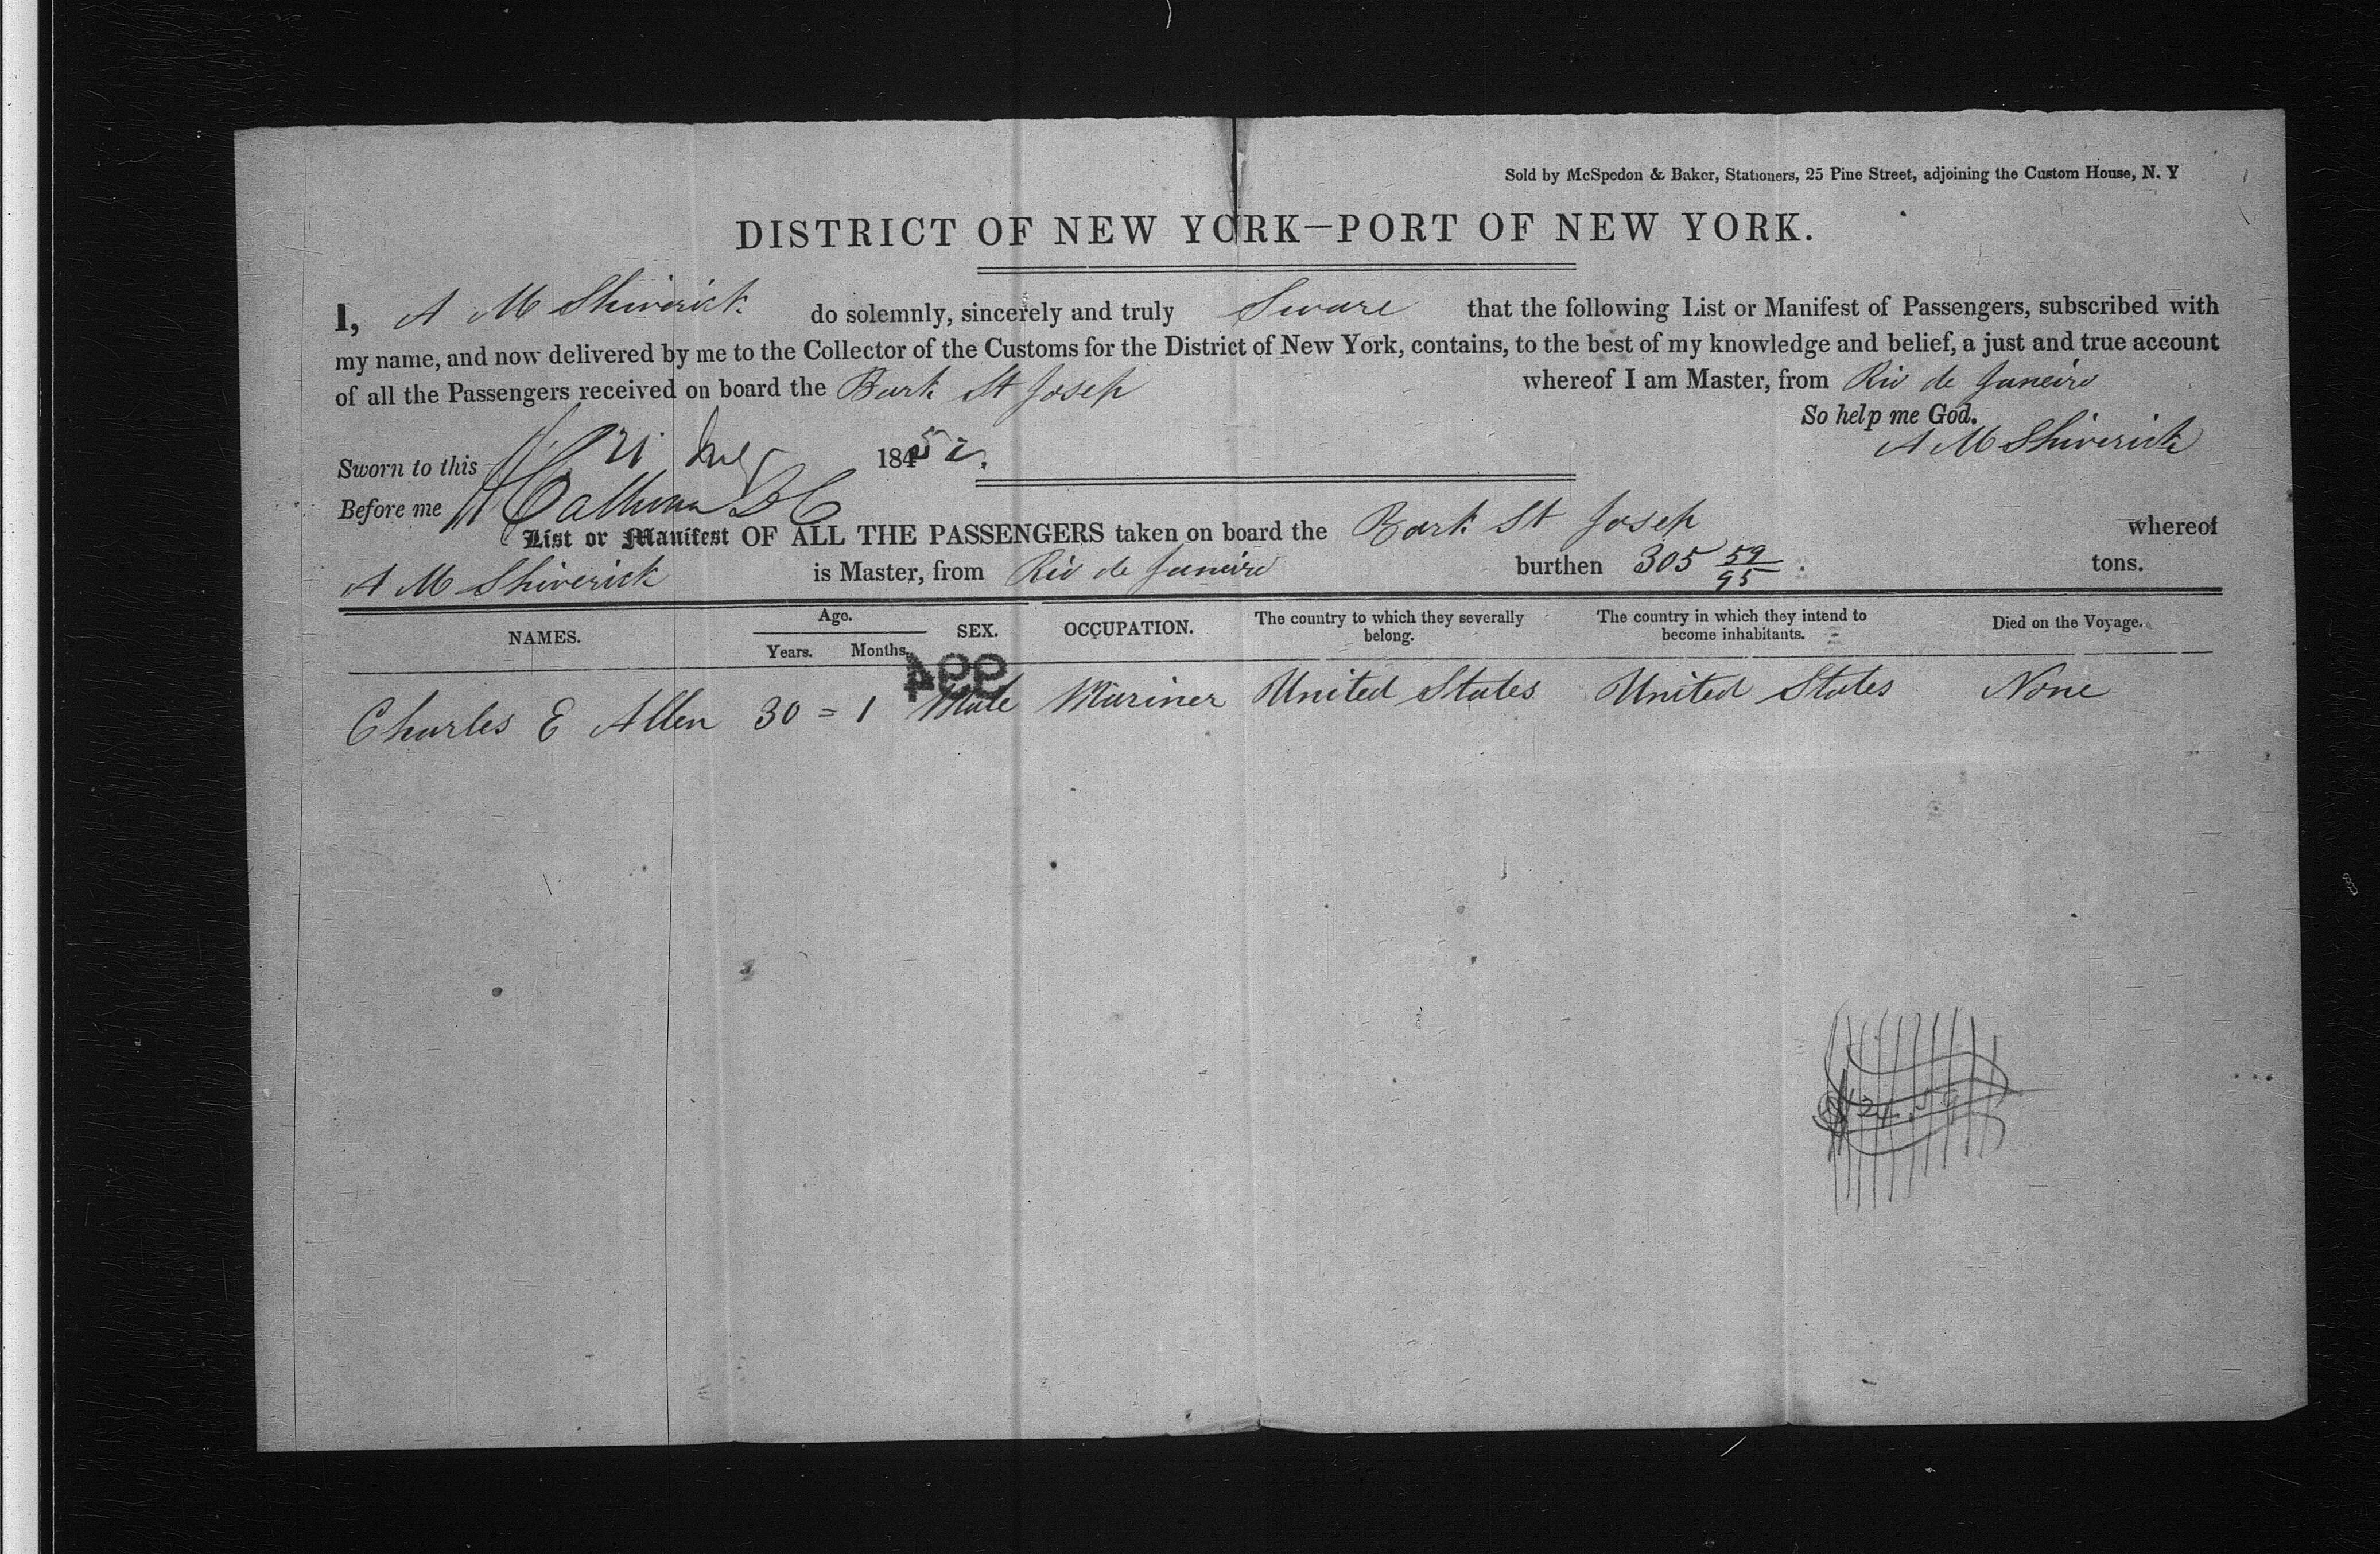 Sold by McSpedon & Baker, Stationers, 25 Pine Street, adjoining the Custom House, N. Y
DISTRICT OF NEW YORK—PORT OF NEW YORK.
I, A M Shiverick do solemnly, sincerely and truly Sware that the following List or Manifest of Passengers, subscribed with
my name, and now delivered by me to the Collector of the Customs for the District of New York, contains, to the best of my knowledge and belief, a just and true account
of all the Passengers received on board the Bark St Josep whereof I am Master, from Rio de Janeiro
So help me God.
A M Shiverick
Sworn to this 21 1852.
Before me Calhoun D C
List or Manifest OF ALL THE PASSENGERS taken on board the Bark St Josep whereof
A M Shiverick is Master, from Rio de Janeiro burthen 305 59/95 tons.
NAMES. Age. Years. Months. SEX. OCCUPATION. The country to which they severally belong. The country in which they intend to become inhabitants. Died on the Voyage.
994
Charles E Allen 30 = 1 Male Mariner United States United States None